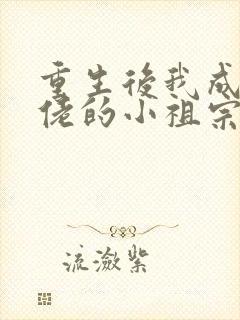 重生後我成
佬的小祖宗
流瀲紫